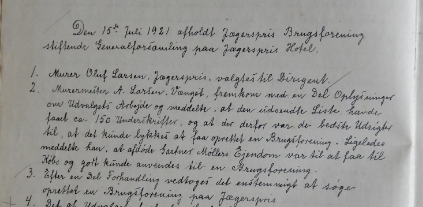 Den 15de Juli 1921 afholdt Jægerspris Brugsforening
stiftende Generalforsamling paa Jægerspris Hotel.
1. Murer Oluf Larsen, Jægerspris, valgtes til Dirigent.
2. Murermester A. Larsen, Vænget, fremkom med en Del Oplysninger
om Udvalgets Arbejde og meddelte, at den udsendte Liste havde
faaet ca. 150 Underskrifter, og at der derfor var de bedste Udsigter
til, at det kunde lykkes at faa oprettet en Brugsforening. Ligeledes
meddelte han, at afdøde Gartner Møllers Ejendom var til at faa til
Købs og godt kunde anvendes til en Brugsforening.
3. Efter en Del Forhandling vedtoges det enstemmigt at søge
oprettet en Brugsforening paa Jægerspris
4. Det at Udvalget